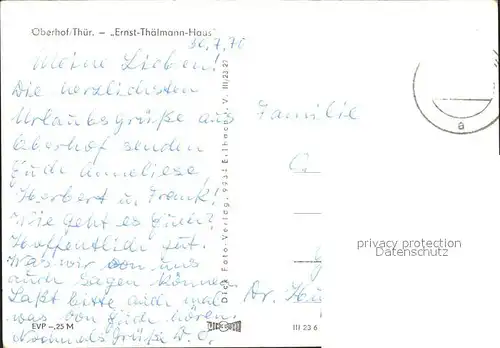 Oberhof/Thür. – „Ernst-Thälmann-Haus"
30.7.70
Meine Lieben!
Die herzlichsten
Urlaubsgrüße aus
Oberhof senden
Euch Anneliese,
Herbert u. Frank!
Wie geht es Euch?
Hoffentlich gut.
Was wir von uns
auch sagen können.
Laßt bitte auch mal
was von Euch hören.
Nochmals Grüße D. O.
EVP –,25 M
Dick Foto-Verlag, 9934 Erlbach i. V. III/23 27
III 23 6
Familie
privacy protection
Datenschutz
Dr.
a